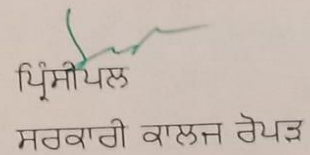 ਪ੍ਰਿੰਸੀਪਲ
ਸਰਕਾਰੀ ਕਾਲਜ ਰੋਪੜ